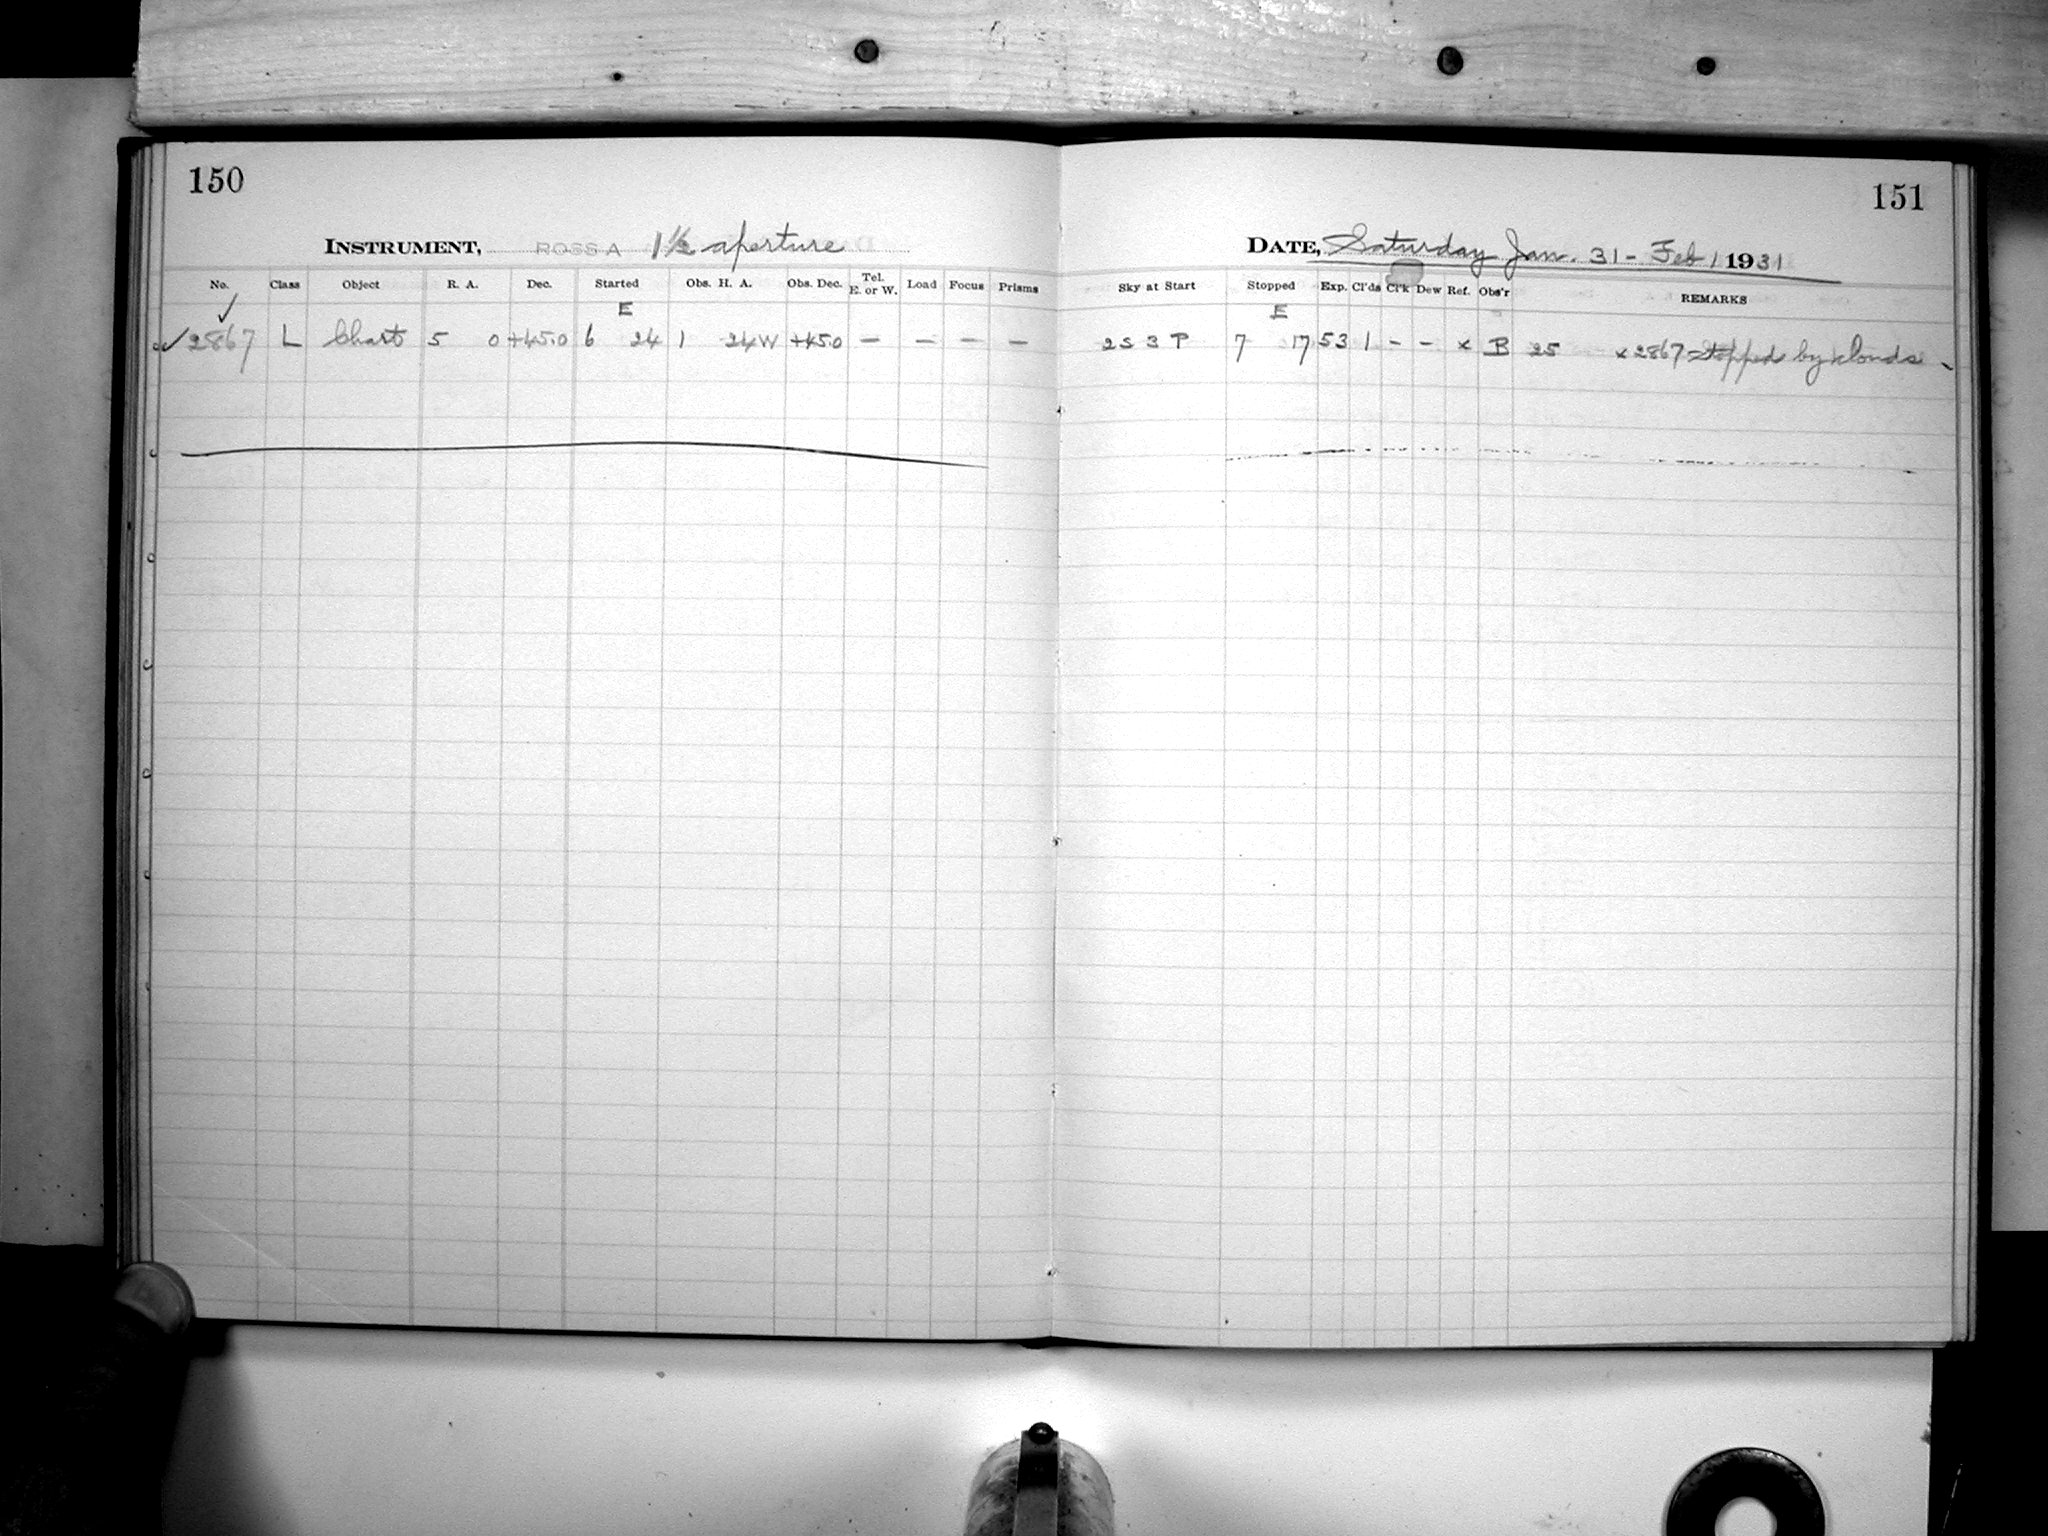 150
INSTRUMENT, ROSS A 1½ aperture
No. Class Object R. A. Dec. Started Obs. H. A. Obs. Dec. Tel. E. or W. Load Focus Prisms
E
✓2867 L Chart 5 0 +45.0 6 24 1 24W +45.0 — — — —
151
DATE, Saturday Jan. 31 - Feb 1 1931
Sky at Start Stopped Exp. Cl'ds Cl'k Dew Ref. Obs'r REMARKS
E
2S 3 P 7 17 53 1 - - x B 25 x 2867 = Stopped by clouds